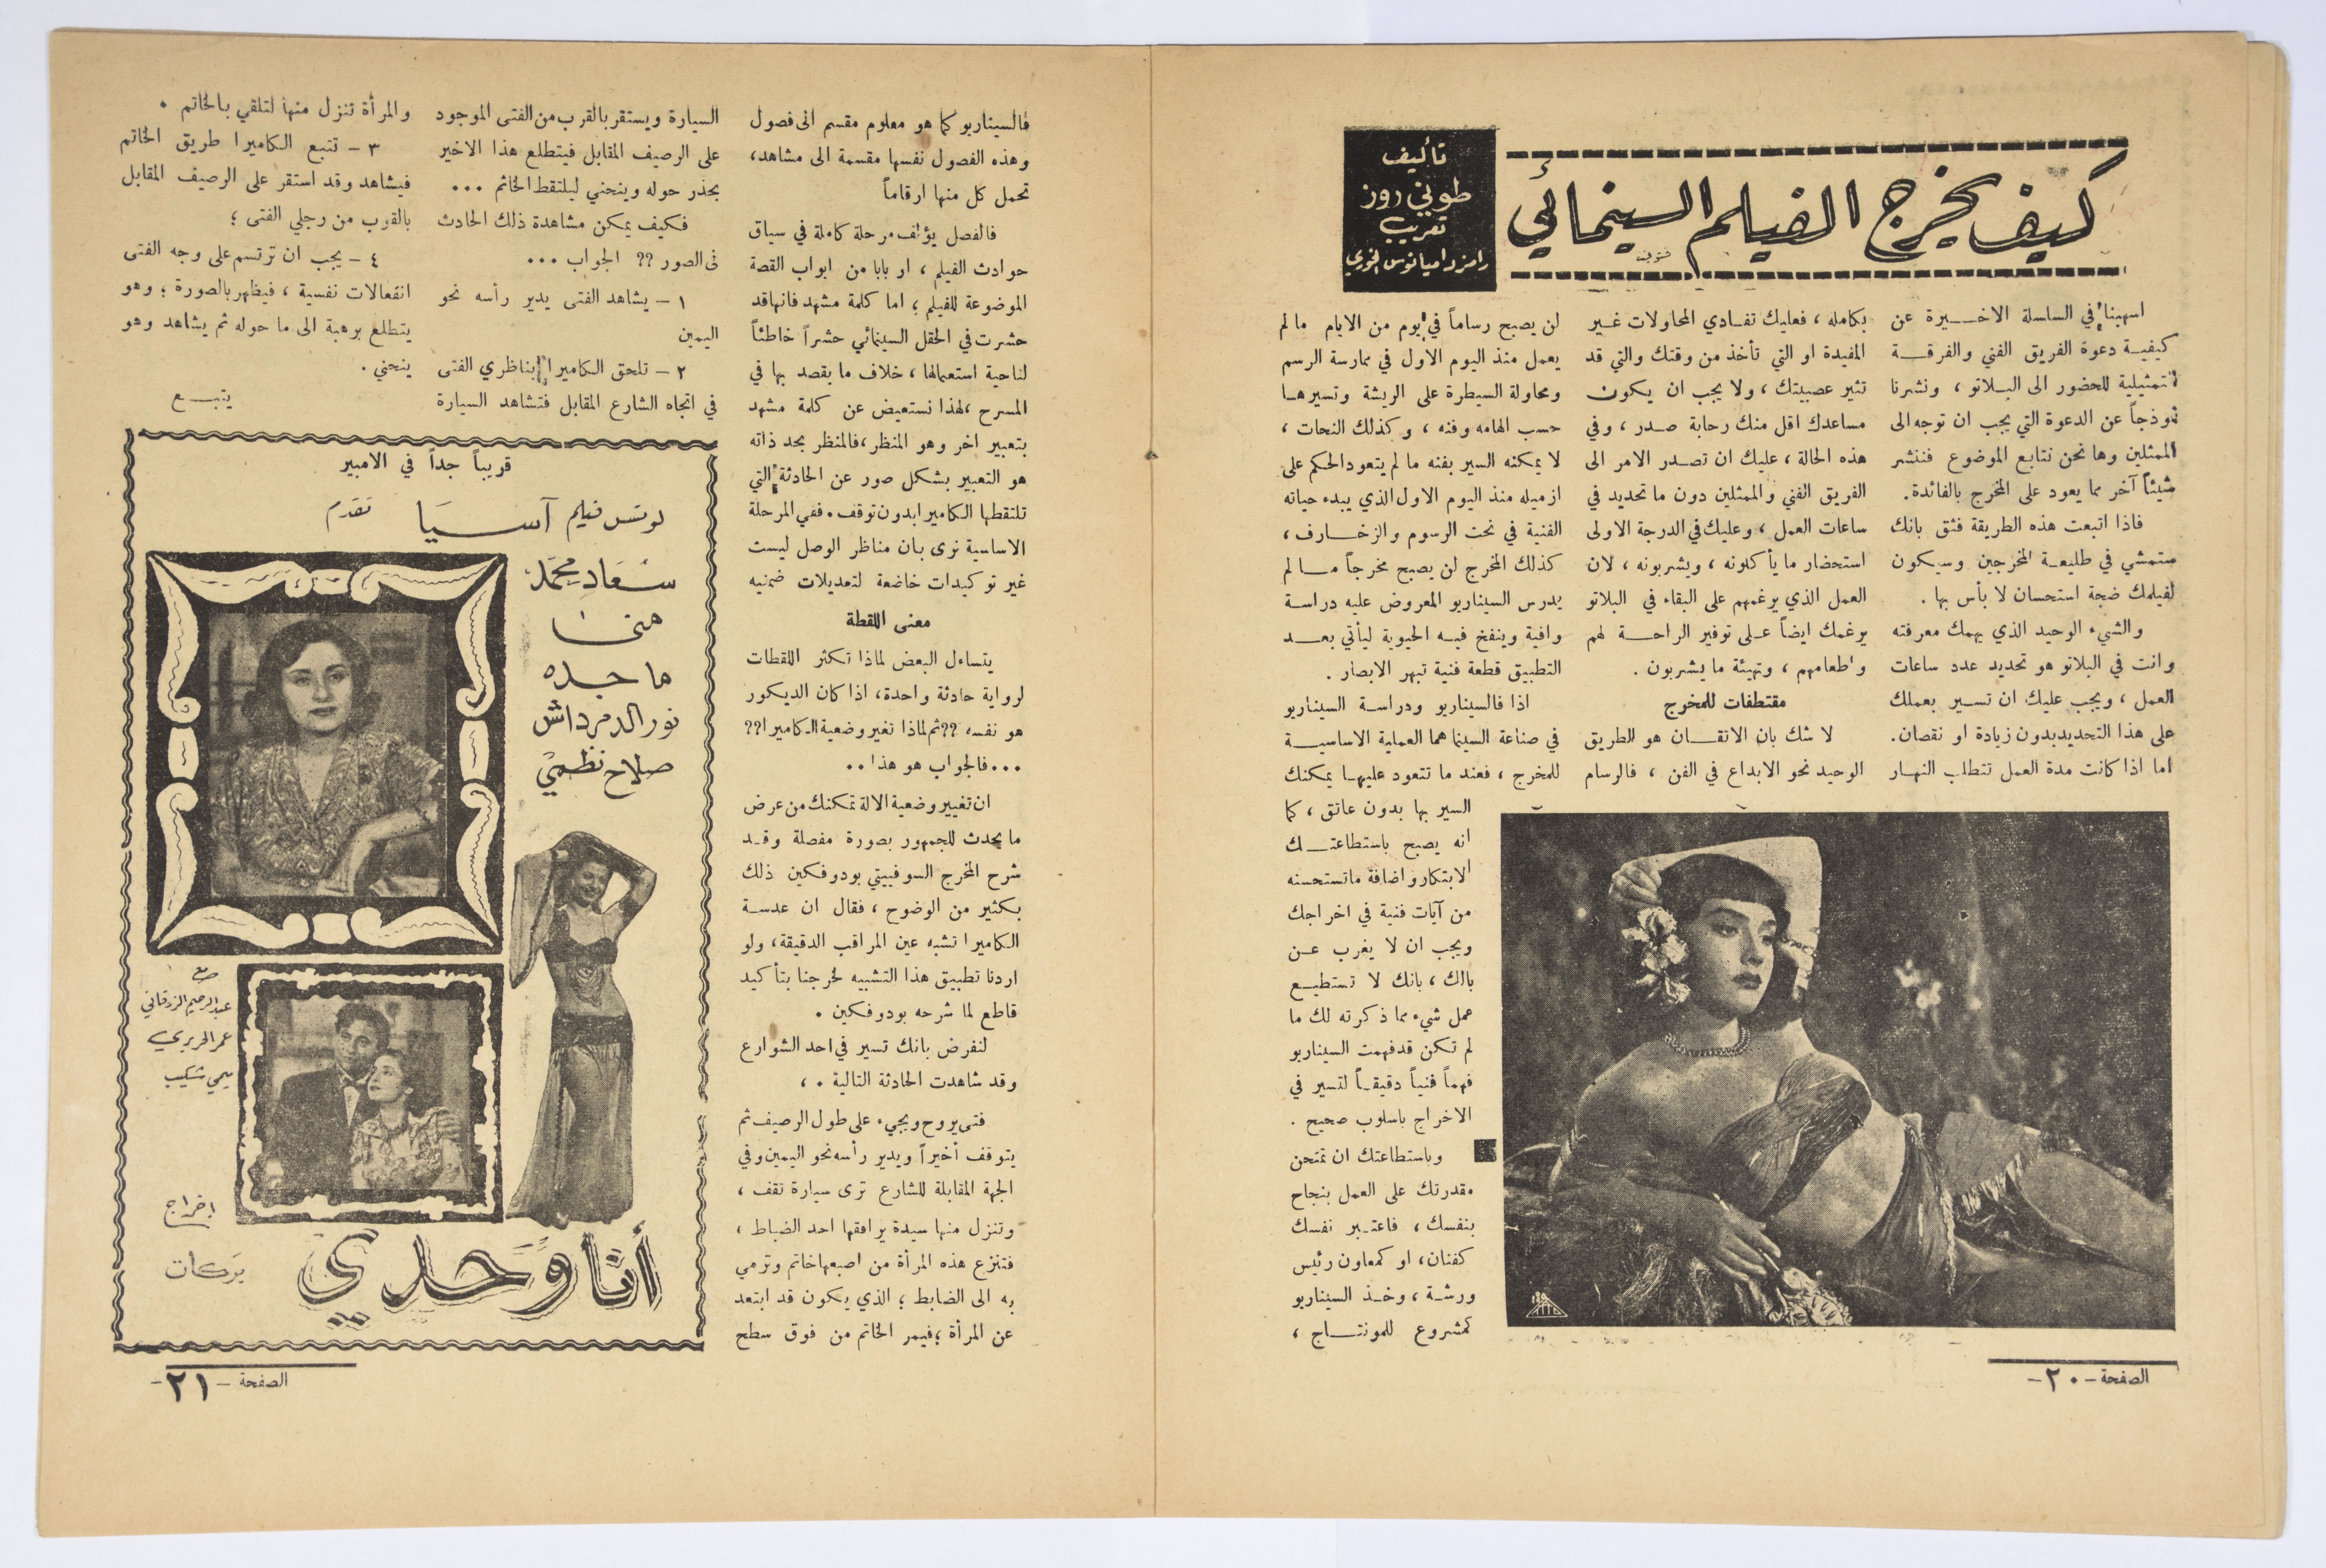 كيف يخرج الفيلم السينمائي
تأليف
طوني روز
تعريب
رامز داميانوس الخوري
اسهبنا في السلسلة الاخـــيرة عن
كيفيـة دعوة الفريق الفني والفرقــة
التمثيلية للحضور الى البـلاتو ، ونشرنا
نموذجاً عن الدعوة التي يجب ان توجه الى
الممثلين وها نحن نتابع الموضوع فننشر
شيئاً آخر مما يعود على المخرج بالفائدة.
فاذا اتبعت هذه الطريقة فثق بانك
ستمشي في طليعـة المخرجين وسيكون
لفيلمك ضجة استحسان لا بأس بها .
والشيء الوحيد الذي يهمك معرفته
وانت في البلاتو هو تحديد عدد ساعات
العمل ، ويجب عليك ان تسـير بعملك
على هذا التحديد بدون زيادة او نقصان.
اما اذا كانت مدة العمل تتطلب النهـار
بكامله ، فعليك تفـادي المحاولات غـير
المفيدة او التي تأخذ من وقتك والتي قد
تثير عصبيتك ، ولا يجب ان يكـون
مساعدك اقل منك رحابة صـدر ، وفي
هذه الحالة ، عليك ان تصـدر الامر الى
الفريق الفني والممثلين دون ما تحديد في
ساعات العمل ، وعليك في الدرجة الاولى
استحضار ما يأكلونه ، ويشربونه ، لان
العمل الذي يرغمهم على البقاء في البلاتو
يرغمك ايضاً عـلى توفير الراحــة لهم
واطعامهم ، وتهيئة ما يشربون .
مقتطفات للمخرج
لا شك بان الاتقــان هو الطريق
الوحيد نحو الابداع في الفن ، فالرسام
لن يصبح رساماً في يوم من الايام ما لم
يعمل منذ اليوم الاول في ممارسة الرسم
ومحاولة السيطرة على الريشة وتسيرهـا
حسب الهامه وفنه ، وكذلك النحات ،
لا يمكنه السير بفنه ما لم يتعود الحكم على
ازميله منذ اليوم الاول الذي يبدء حياته
الفنية في نحت الرسوم والزخــارف ،
كذلك المخرج لن يصبح مخرجاً مـا لم
يدرس السيناريو المعروض عليه دراسـة
وافية وينفخ فيـه الحيوية ليأتي بعــد
التطبيق قطعة فنية تبهر الابصار .
اذا فالسيناريو ودراسـة السيناريو
في صناعة السينما هما العملية الاساسيــة
للمخرج ، فعند ما تتعود عليهـا يمكنك
السير بها بدون عائق ، كما
انه يصبح باستطاعتــك
الابتكار واضافة ما تستحسنه
من آيات فنية في اخراجك
ويجب ان لا يغرب عـن
بالك ، بانك لا تستطيـع
عمل شيء مما ذكرته لك ما
لم تكن قد فهمت السيناريو
فهماً فنياً دقيقـاً لتسير في
الاخراج باسلوب صحيح .
وباستطاعتك ان تمتحن
مقدرتك على العمل بنجاح
بنفسك ، فاعتـبر نفسك
كفنان، او كمعاون رئيس
ورشـة ، وخـذ السيناريو
كمشروع للمونتـــاج ،
الصفحة - ٢٠ -
فالسيناريو كما هو معلوم مقسم الى فصول
وهذه الفصول نفسها مقسمة الى مشاهد،
تحمل كل منها ارقاماً
فالفصل يؤلف مرحلة كاملة في سياق
حوادث الفيلم ، او بابا من ابواب القصة
الموضوعة للفيلم ؛ اما كلمة مشهد فانها قد
حشرت في الحقل السينمائي حشراً خاطئاً
لناحية استعمالها ، خلاف ما يقصد بها في
المسرح ،لهذا نستعيض عن كلمة مشهد
بتعبير اخر وهو المنظر ،فالمنظر بحد ذاته
هو التعبير بشكل صور عن الحادثة التي
تلتقطها الكاميرا بدون توقف. ففي المرحلة
الاساسية نرى بان مناظر الوصل ليست
غير توكيدات خاضعة لتعديلات ضمنيه
معنى اللقطة
يتساءل البعض لماذا تكثر اللقطات
لرواية حادثة واحدة، اذا كان الديكور
هو نفسه ؟؟ ثم لماذا تغير وضعية الكاميرا؟؟
... فالجواب هو هذا ..
ان تغيير وضعية الالة تمكنك من عرض
ما يحدث للجمهور بصورة مفصلة وقـد
شرح المخرج السوفييتي بودوفكين ذلك
بكثير من الوضوح ، فقال ان عدسـة
الكاميرا تشبه عين المراقب الدقيقة، ولو
اردنا تطبيق هذا التشبيه لخرجنا بتأكيد
قاطع لما شرحه بودوفكين .
لنفرض بانك تسير في احد الشوارع
وقد شاهدت الحادثة التالية . ،
فتى يروح ويجيء على طول الرصيف ثم
يتوقف أخيراً ويدير رأسه نحو اليمين وفي
الجهة المقابلة للشارع ترى سيارة تقف ،
وتنزل منها سيدة يرافقها احد الضباط ،
فتنزع هذه المرأة من اصبعها خاتم وترمي
به الى الضابط ؛ الذي يكون قد ابتعد
عن المرأة ؛ فيمر الخاتم من فوق سطح
السيارة ويستقر بالقرب من الفتى الموجود
على الرصيف المقابل فيتطلع هذا الاخير
بحذر حوله وينحني ليلتقط الخاتم ...
فكيف يمكن مشاهدة ذلك الحادث
في الصور ؟؟ الجواب ...
١ - يشاهد الفتى يدير رأسه نحو
اليمين
٢ - تلحق الكاميرا بناظري الفتى
في اتجاه الشارع المقابل فتشاهد السيارة
والمرأة تنزل منها لتلقي بالخاتم .
٣ - تتبع الكاميرا طريق الخاتم
فيشاهد وقد استقر على الرصيف المقابل
بالقرب من رجلي الفتى ؛
٤ - يجب ان ترتسم على وجه الفتى
انفعالات نفسية ، فيظهر بالصورة ؛ وهو
يتطلع برهبة الى ما حوله ثم يشاهد وهو
ينحني .
يتبـــع
قريباً جداً في الامبير
لوتس فيلم آسيا تقدم
سعاد محمد
منى
ماجده
نور الدمرداش
صلاح نظمي
مع
عبد الرحيم الزرقاني
عمر الحريري
ميمي شكيب
إخراج
بركات
أنا وحدي
الصفحة - ٢١ -